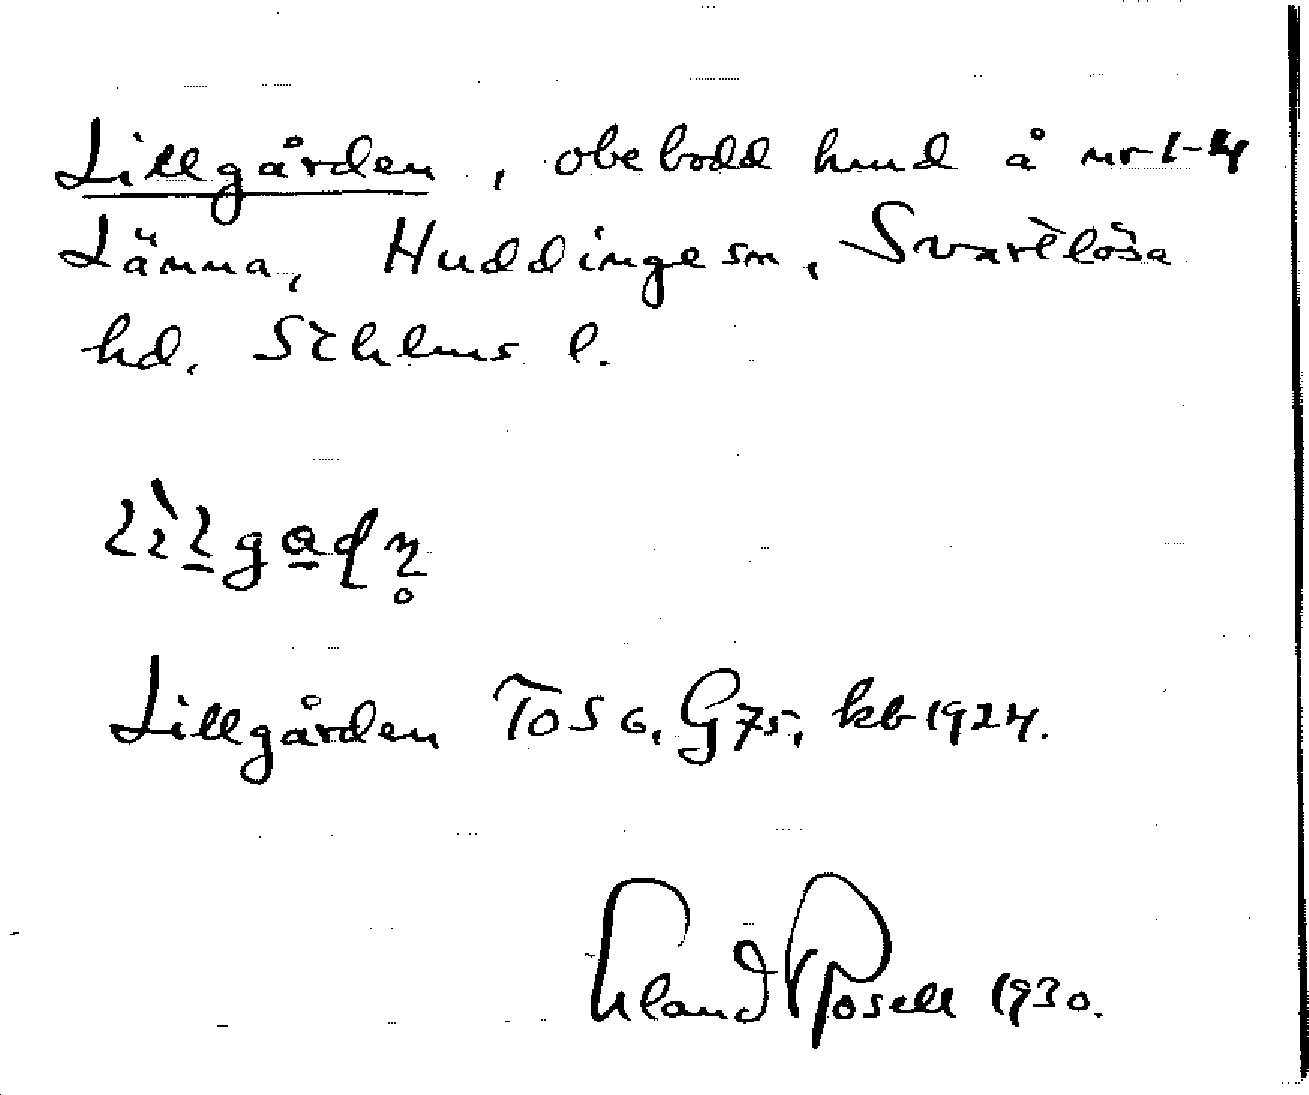 Lillgården, obebodd hmd å nr 1-4
Länna, Huddinge sn, Svartlösa
hd. Sthlms l.
Lillgården TOS 6, G75, kb 1924.
Erland Rosell 1930.